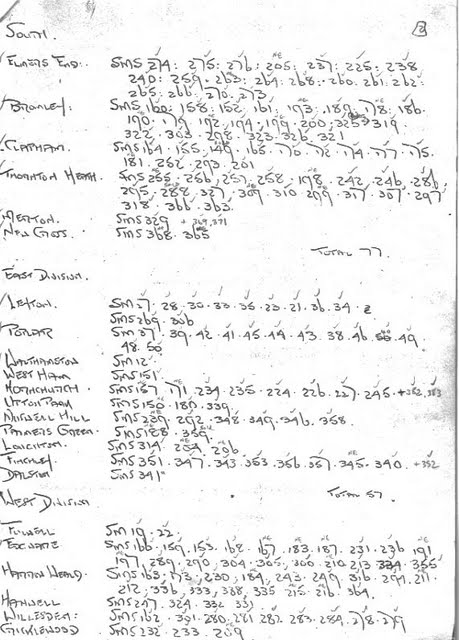 3
SOUTH.
ELMERS END: SMS 274: 275: 276: 205: 237: 225: 238
240: 259. 263: 264: 268: 260. 261: 262:
265: 266. 270. 273
BROMLEY: SMS 160: 158: 152. 161. 173: 189: 178: 186
190. 179. 192. 194. 196. 200. 325. 319.
322. 303. 298. 323. 326. 321
CLAPHAM: SMS 164. 155. 148. 165. 170. 172. 174. 177. 175.
181. 262. 293. 201
THORNTON HEATH. SMS 255. 256. 257. 258. 198. 242. 246. 286
295. 288. 327. 309. 310. 299. 317. 307. 297
318. 366. 363.
MERTON. SMS 329 + 369, 371
NEW CROSS. SMS 368. 365
TOTAL 77.
EAST DIVISION.
LEYTON. SM 27. 28. 30. 33. 35. 23. 21. 36. 34.
SMS 269. 306
POPLAR SM 37. 39. 42. 41. 45. 44. 43. 38. 46. 50. 49.
48. 50.
WALTHAMSTOW SM 12
WEST HAM SMS 151.
HORNCHURCH SMS 157. 171. 234. 235. 224. 226. 227. 245. + 352, 353
UPTON PARK SMS 150. 180. 339.
MUSWELL HILL SMS 239. 292. 348. 349. 346. 358.
PALMERS GREEN. SMS 188. 359.
LOUGHTON. SMS 314. 254. 296
FINCHLEY. SMS 351. 347. 343. 353. 356. 357. 345. 340. + 352
DALSTON SMS 341
TOTAL 57.
WEST DIVISION
FULWELL SM 19. 22.
EDGWARE SMS 166. 159. 153. 162. 167. 183. 187. 231. 236. 191
197. 289. 290. 304. 305. 300. 210. 213. 334. 355
HARROW WEALD. SMS 163. 173. 230. 184. 243. 249. 316. 291. 211.
212. 336. 333. 338. 335. 215. 216. 364.
HANWELL SMS 247. 324. 332. 331
WILLESDEN: SMS 162. 391. 280. 281. 282. 283. 284. 278. 279
CRICKLEWOOD SMS 232. 233. 209